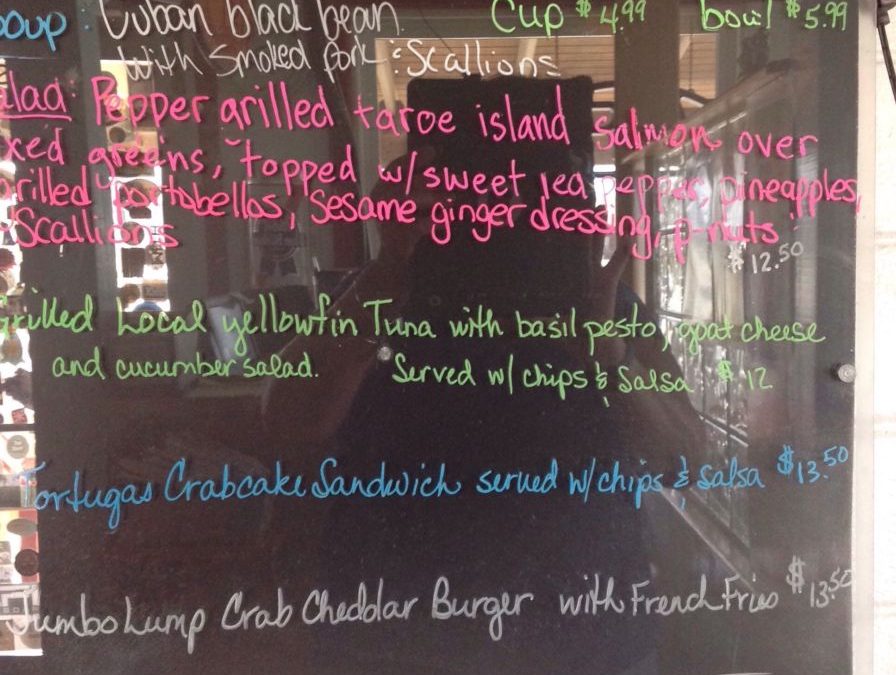 oup: Cuban black bean. Cup $4.99 bowl $5.99
With smoked pork & Scallions
alad: Pepper grilled taroe island salmon over
xed greens, topped w/ sweet tea pepper, pineapples,
rilled portobellos, sesame ginger dressing, p-nuts
& Scallions $12.50
Grilled Local yellowfin Tuna with basil pesto, goat cheese
and cucumber salad. Served w/ chips & Salsa $12
Tortugas Crabcake Sandwich served w/ chips & salsa $13.50
Jumbo Lump Crab Cheddar Burger with French Fries $13.50